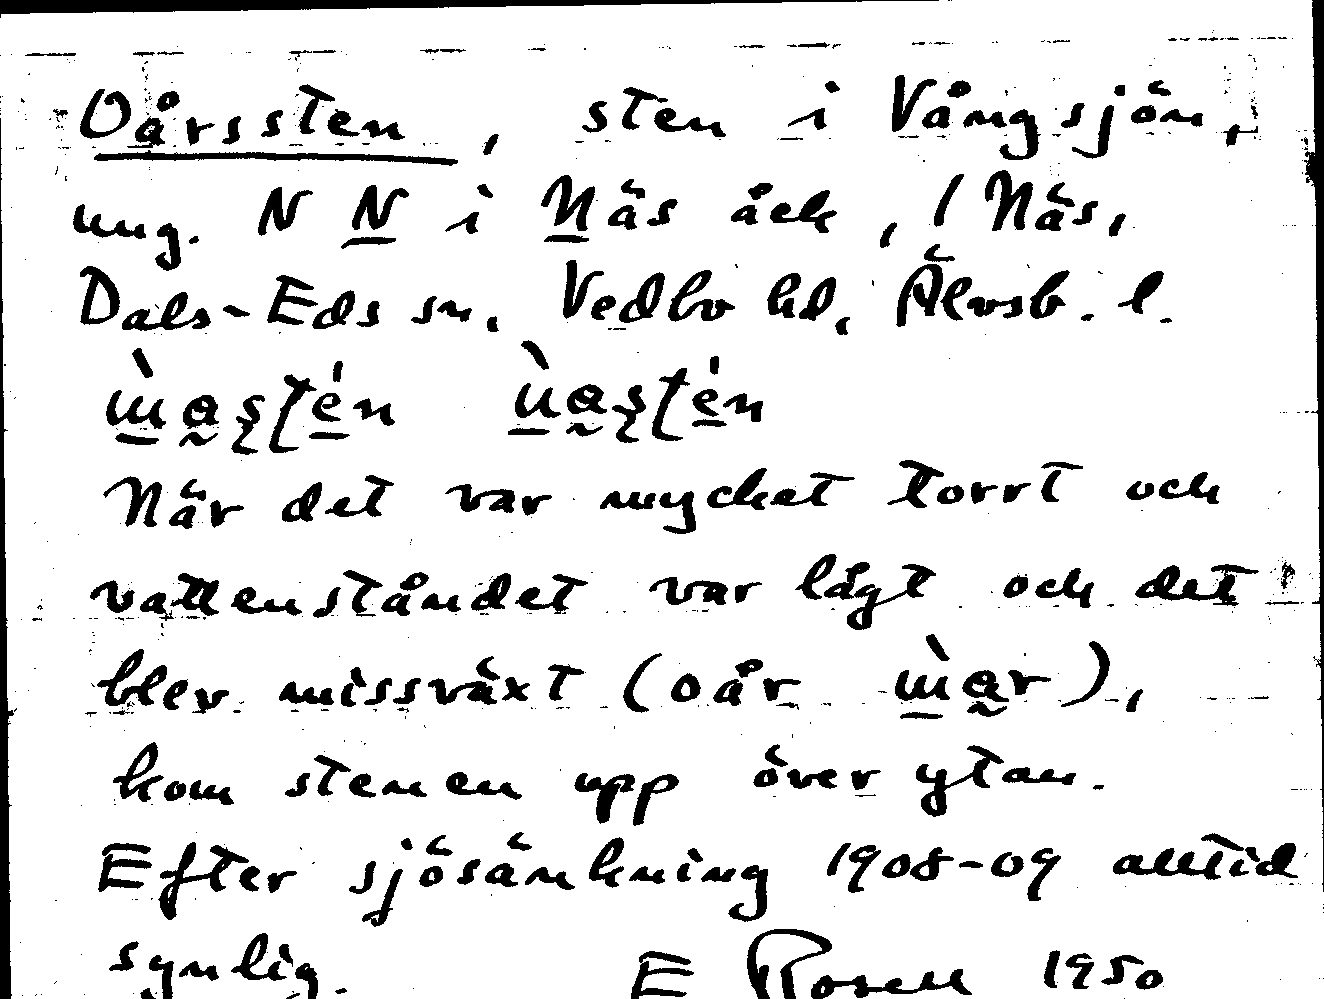 Oårssten, sten i Vångsjön,
ung. N N i Näs äck, / Näs,
Dals-Eds sn. Vedbo hd, Älvsb. l.
När det var mycket torrt och
vattenståndet var lågt och det
blev missväxt (oår ),
kom stenen upp över ytan.
Efter sjösänkning 1908-09 alltid
synlig. E Rosell 1950